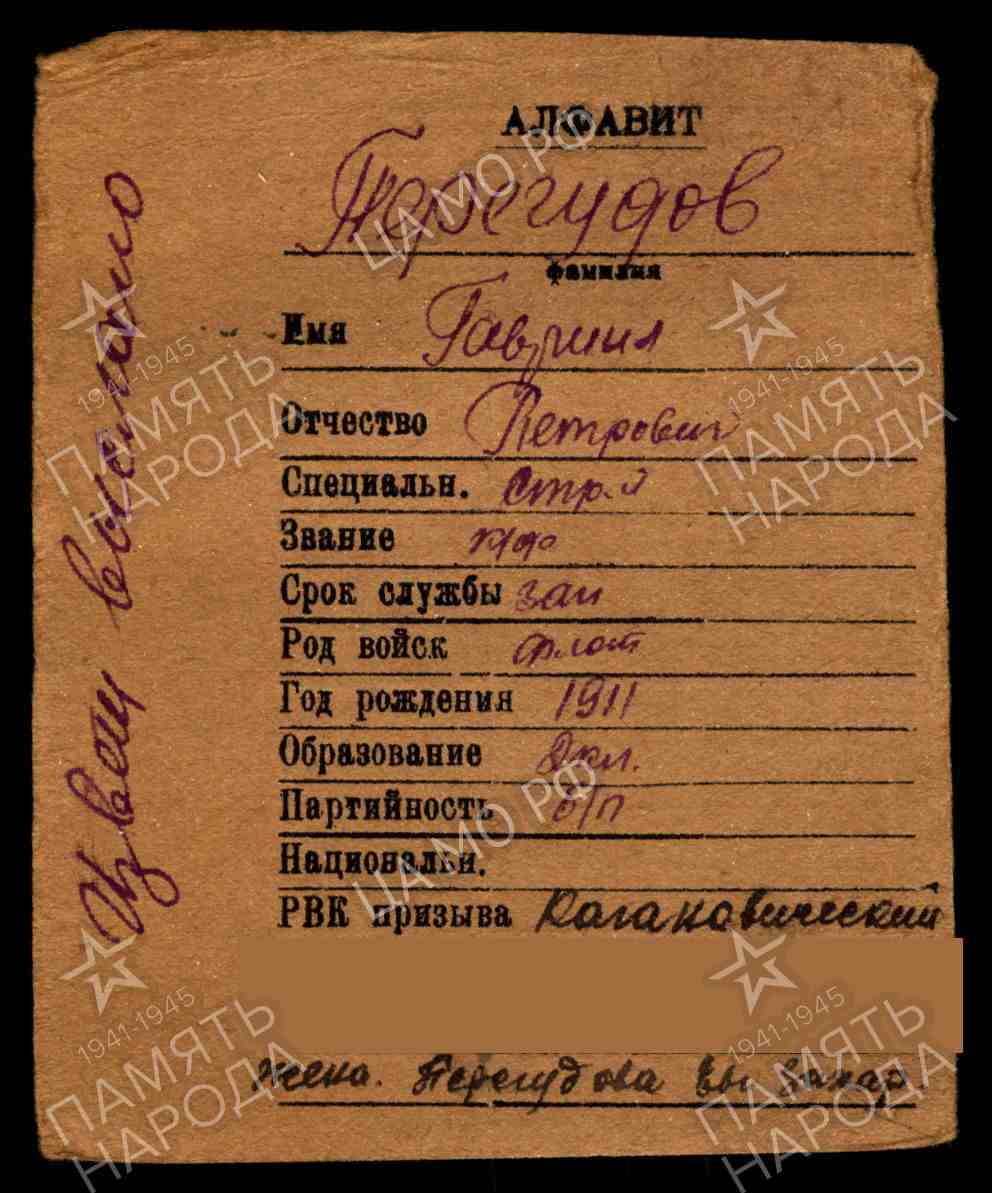 АЛФАВИТ
Перегудов
фамилия
Имя Гавриил
Отчество Петрович
Специальн. Стр.
Звание
Срок службы зап
Род войск флот
Год рождения 1911
Образование 2кл.
Партийность б/п
Национальн.
РВК призыва Кагановический
жена. Перегудова Ев. Захар.
Извещ выслано
ЦАМО.РФ
1941-1945
ПАМЯТЬ
НАРОДА
1941-1945
ПАМЯТЬ
НАРОДА
ЦАМО.РФ
1941-1945
ПАМЯТЬ
НАРОДА
1941-1945
ПАМЯТЬ
НАРОДА